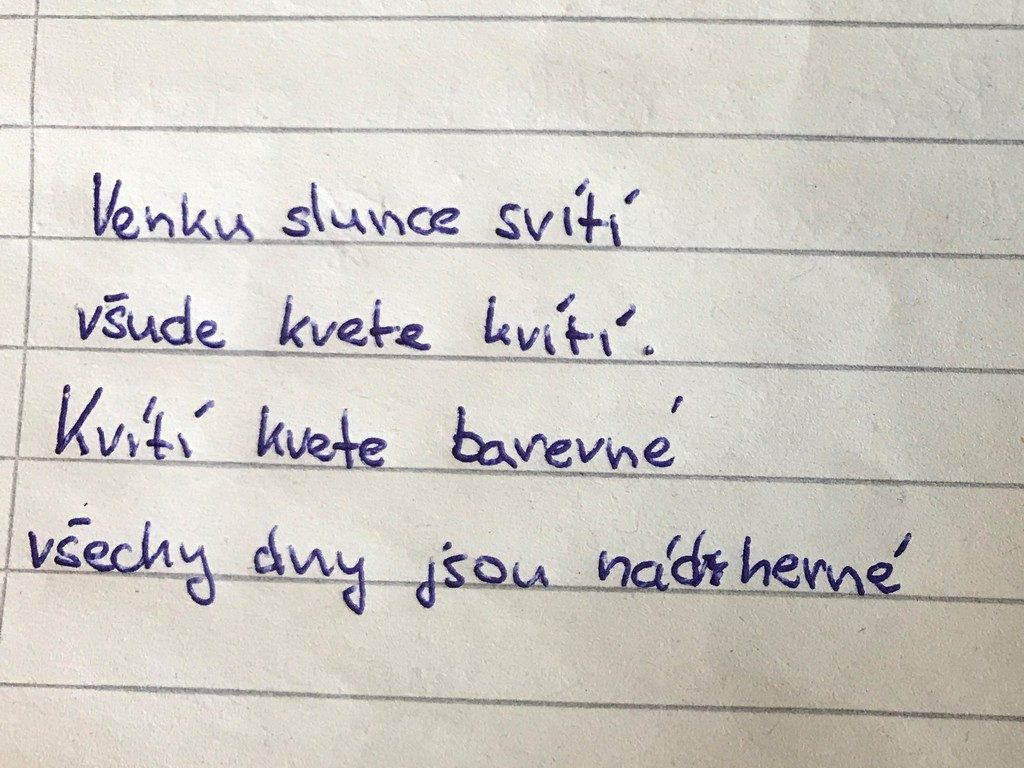 Venku slunce svítí
všude kvete kvítí.
Kvítí kvete barevné
všechy dny jsou nádherné